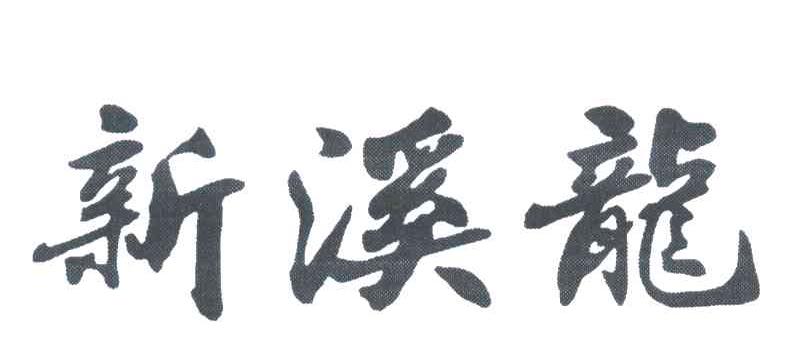 新溪龍